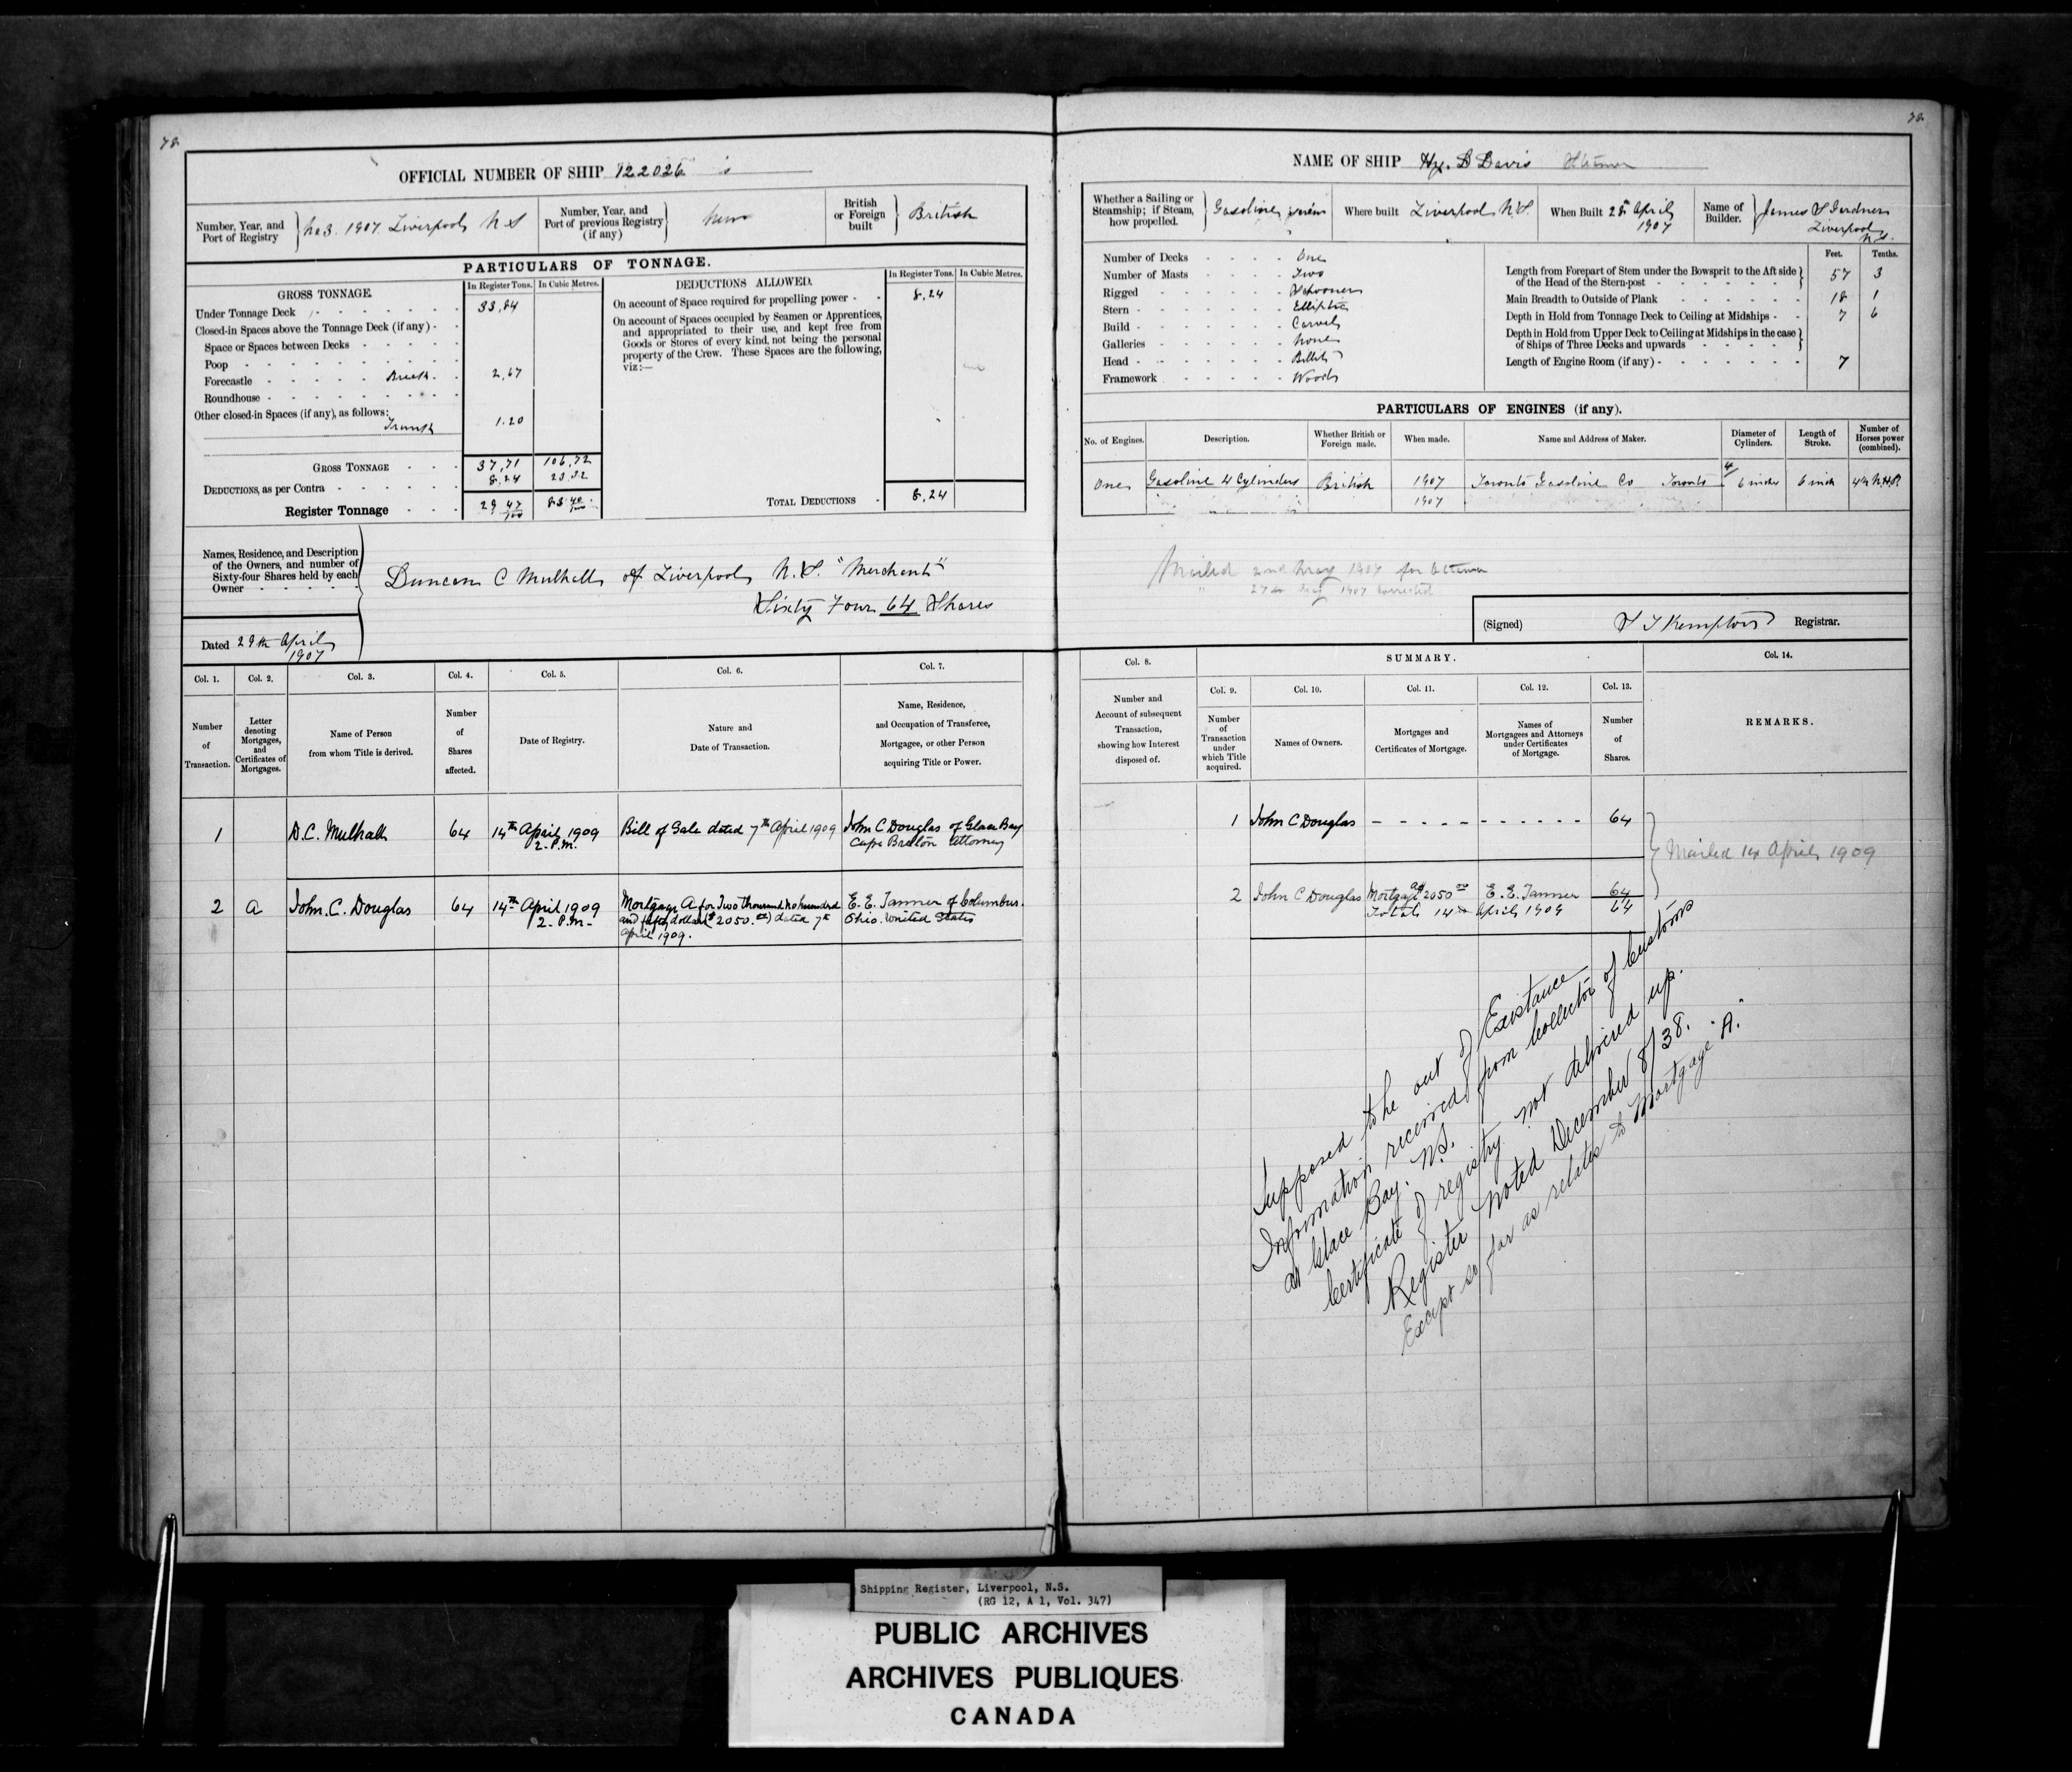 78.
78.
OFFICIAL NUMBER OF SHIP 122026
NAME OF SHIP Hy. B Davis
Number, Year, and Port of Registry
No 3. 1907. Liverpool N S
Number, Year, and Port of previous Registry (if any)
New
British or Foreign built
British
PARTICULARS OF TONNAGE.
GROSS TONNAGE.
In Register Tons.
In Cubic Metres.
Under Tonnage Deck 33,84
Closed-in Spaces above the Tonnage Deck (if any)
Space or Spaces between Decks
Poop
Forecastle Break. 2,67
Roundhouse
Other closed-in Spaces (if any), as follows:
Trunk 1.20
GROSS TONNAGE 37,71 106,72
DEDUCTIONS, as per Contra 8.24 23.32
Register Tonnage 29 47/100 83 40/100
DEDUCTIONS ALLOWED.
In Register Tons.
In Cubic Metres.
On account of Space required for propelling power 8,24
On account of Spaces occupied by Seamen or Apprentices,
and appropriated to their use, and kept free from
Goods or Stores of every kind, not being the personal
property of the Crew. These Spaces are the following,
viz:—
TOTAL DEDUCTIONS 8,24
Names, Residence, and Description
of the Owners, and number of
Sixty-four Shares held by each
Owner
Duncan C Mulhall of Liverpool N.S. "Merchant"
Sixty Four 64 Shares
Dated 29th April
1907
Whether a Sailing or Steamship; if Steam, how propelled.
Gasoline screw
Where built Liverpool N.S.
When Built April
1907
Name of Builder.
James S Gardner
Liverpool
N.S.
Number of Decks One
Number of Masts Two
Rigged Schooner
Stern Elliptic
Build Carvel
Galleries None
Head Billet
Framework Wood
Feet. Tenths.
Length from Forepart of Stem under the Bowsprit to the Aft side
of the Head of the Stern-post 57 3
Main Breadth to Outside of Plank 18 1
Depth in Hold from Tonnage Deck to Ceiling at Midships 7 6
Depth in Hold from Upper Deck to Ceiling at Midships in the case
of Ships of Three Decks and upwards
Length of Engine Room (if any) 7
PARTICULARS OF ENGINES (if any).
No. of Engines.
Description.
Whether British or Foreign made.
When made.
Name and Address of Maker.
Diameter of Cylinders.
Length of Stroke.
Number of Horses power (combined).
One Gasoline 4 Cylinders British 1907 Toronto Gasoline Co Toronto 4/ 6 inches 6 inch N.H.P.
1907
Mailed 2nd May 1907 for Ottawa
" 27th May 1907 corrected
(Signed) Kempton Registrar.
Col. 1.
Col. 2.
Col. 3.
Col. 4.
Col. 5.
Col. 6.
Col. 7.
Number of Transaction.
Letter denoting Mortgages, and Certificates of Mortgages.
Name of Person from whom Title is derived.
Number of Shares affected.
Date of Registry.
Nature and Date of Transaction.
Name, Residence, and Occupation of Transferee, Mortgagee, or other Person acquiring Title or Power.
1 D.C. Mulhall 64 14th April 1909 Bill of Sale dated 7th April 1909 John C Douglas of Glace Bay
2. P.M. Cape Breton Attorney
2 A John. C. Douglas 64 14th April 1909 Mortgage A for Two thousand no hundred E. E. Tanner of Columbus.
2. P.M. and fifty dollars ($2050.00) dated 7th Ohio. United States
April 1909.
SUMMARY.
Col. 8.
Col. 9.
Col. 10.
Col. 11.
Col. 12.
Col. 13.
Col. 14.
Number and Account of subsequent Transaction, showing how Interest disposed of.
Number of Transaction under which Title acquired.
Names of Owners.
Mortgages and Certificates of Mortgage.
Names of Mortgagees and Attorneys under Certificates of Mortgage.
Number of Shares.
REMARKS.
1 John C Douglas - - - - - - - - - - 64
Mailed 14 April 1909
2 John C Douglas Mortgage A $2050 00 E. E. Tanner 64
Totals 14th April 1909 64
Supposed to be out of Existance
Information received from Collector of Customs
at Glace Bay. N.S.
Certificate of registry not delivered up.
Register noted December 8/38.
Except so far as relates to Mortgage "A."
Shipping Register, Liverpool, N.S.
(RG 12, A 1, Vol. 347)
PUBLIC ARCHIVES
ARCHIVES PUBLIQUES
CANADA